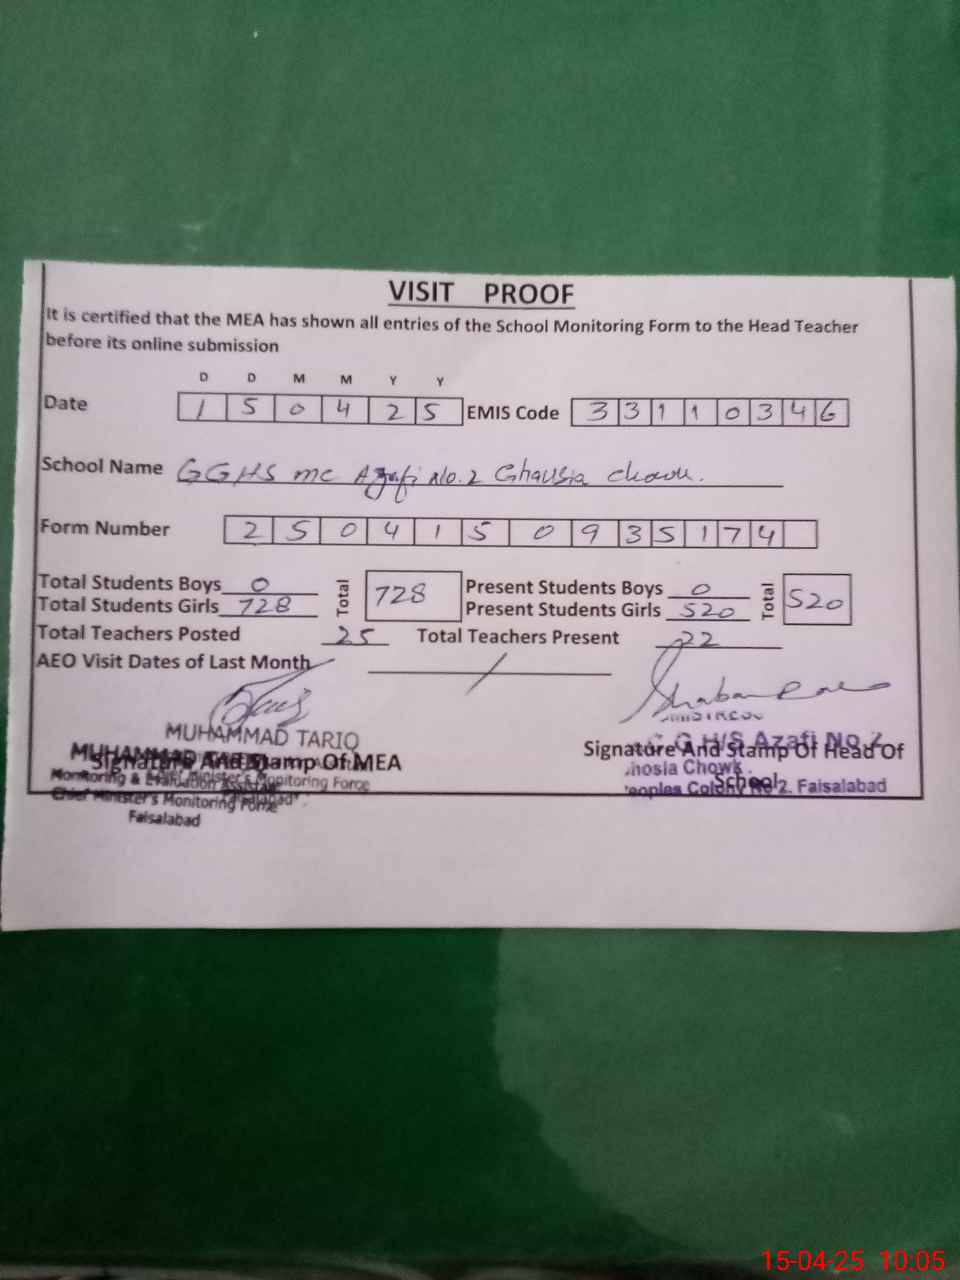 VISIT PROOF
It is certified that the MEA has shown all entries of the School Monitoring Form to the Head Teacher
before its online submission
D D M M Y Y
Date 1 5 0 4 2 5 EMIS Code 3 3 1 1 0 3 4 6
School Name GGHS mc Azafi No. 2 Ghausia chowk.
Form Number 2 5 0 4 1 5 0 9 3 5 1 7 4
Total Students Boys 0 Total 728 Present Students Boys 0 Total 520
Total Students Girls 728 Present Students Girls 520
Total Teachers Posted 25 Total Teachers Present 22
AEO Visit Dates of Last Month /
MUHAMMAD TARIQ
MUHAMMAD
Signature And Stamp Of MEA
Monitoring & Evaluation Assistant
Chief Minister's Monitoring Force
Faisalabad
G.G.H/S Azafi No 2
Signature And Stamp Of Head Of
School
hosia Chowk
eoples Colony No 2. Faisalabad
15-04-25 10:05